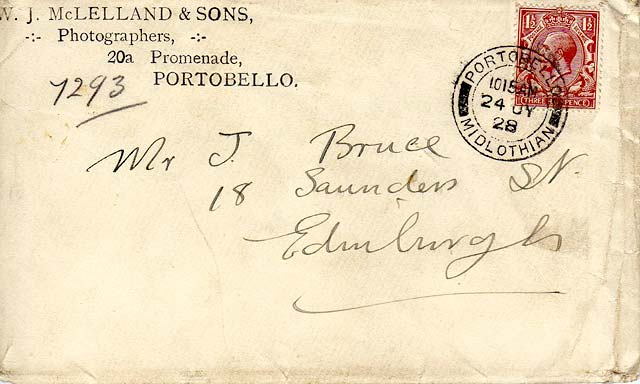 W. J. McLELLAND & SONS,
-:- Photographers, -:-
20a Promenade,
PORTOBELLO.
7293
1½ 1½
THREE HALFPENCE
PORTOBELLO
1015AM
24 JY
28
MIDLOTHIAN
Mr J. Bruce
18 Saunders St.
Edinburgh